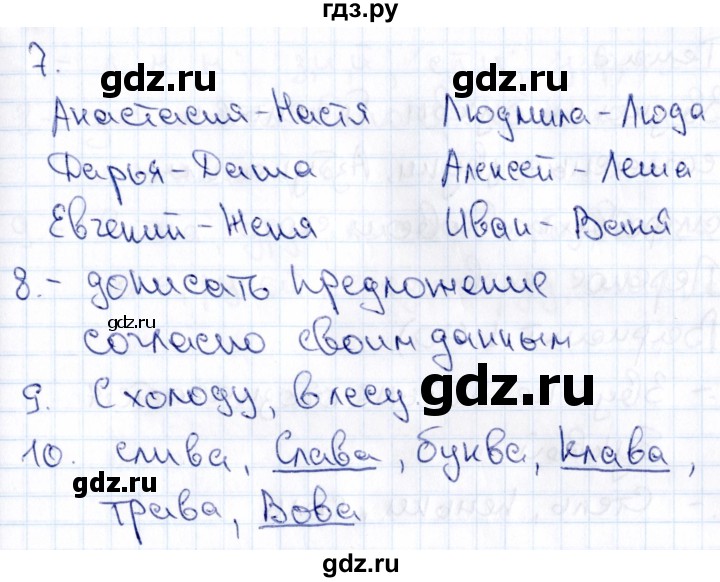 гдз.ру
7.
gdz.ru gdz.ru
Анастасия-Настя Людмила-Люда
Дарья-Даша Алексей-Леша
Евгений-Женя Иван-Ваня
8.- дописать предложение
gdz.ru
согласно своим данным
9. С холоду, в лесу gdz.ru
10. слива, Слава, буква, клава,
gdz.ru
трава, Вова
gdz.ru
gdz.ru